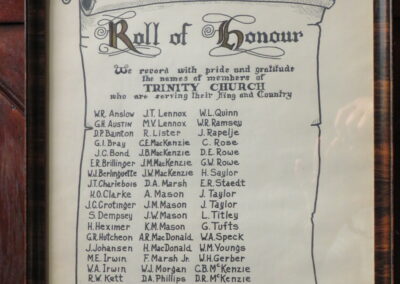 Roll of Honour
We record with pride and gratitude
the names of members of
TRINITY CHURCH
who are serving their King and Country
W.R. Anslow J.T. Lennox W.L. Quinn
G.H. Austin M.V. Lennox W.R. Ramsey
D.P. Bainton R. Lister J. Rapelje
G.I. Bray C.E. MacKenzie C. Rose
J.C. Bond J.B. MacKenzie D.E. Rowe
E.R. Brillinger J.M. MacKenzie G.W. Rowe
W.J. Berlinguette J.W. MacKenzie H. Saylor
J.T. Charlebois D.A. Marsh E.R. Staedt
K.O. Clarke A. Mason J. Taylor
J.C. Crotinger J.M. Mason J. Taylor
S. Dempsey J.W. Mason L. Titley
H. Heximer K.M. Mason G. Tufts
G.R. Hutcheon A.R. MacDonald W.A. Speck
J. Johansen H. MacDonald W.M. Youngs
M.E. Irwin F. Marsh Jr. W.H. Gerber
W.A. Irwin W.J. Morgan C.B. McKenzie
R.W. Kett D.A. Phillips D.R. McKenzie